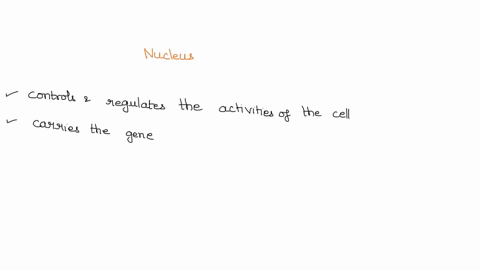 Nucleus
✓ controls & regulates the activities of the cell
✓ carries the gene